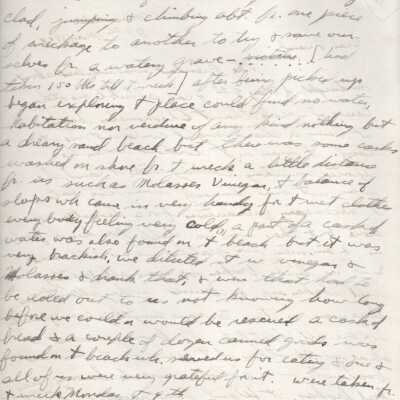 clad, jumping & climbing abt. fr. one piece
of wreckage to another to try & save our
selves fr. a watery grave
after being picked up
began exploring t place could find no water,
habitation nor verdure of any kind nothing but
a dreary sand beach but there was some casks
washed on shore fr. t wreck a little distance
fr. us such as Molasses Vinegar, & balance of
slops wh came in very handy for t wet clothes
every body feeling very cold, a part of a cask of
water was also found on t beach but it was
very brackish, we diluted it w vinegar &
Molasses & drank that, & even that had to
be doled out to us not knowing how long
before we could or would be rescued a cask of
bread & a couple of dozen canned goods was
found on t beach wh. served us for eating &
all of us were very grateful for it. were taken fr.
t wreck Monday t 9th